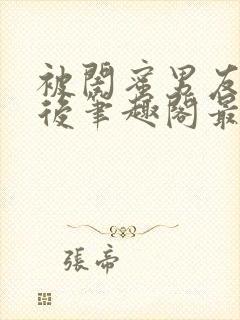 被閨蜜男友
後筆趣閣最
張帝